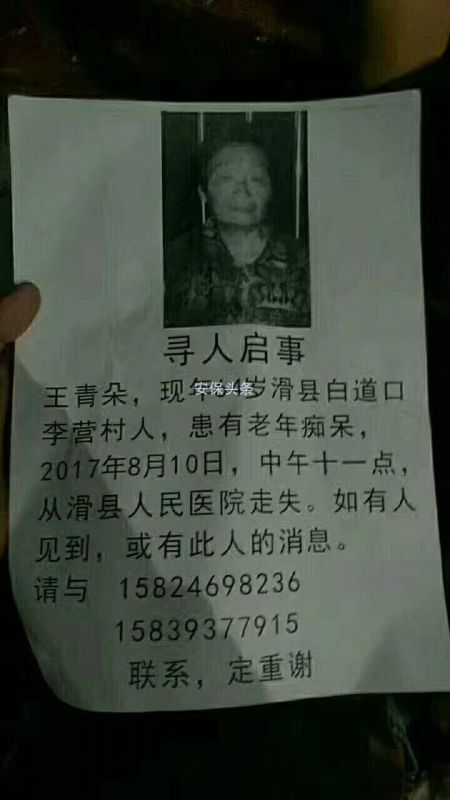 寻人启事
王青朵，现年 岁滑县白道口
安保头条
李营村人，患有老年痴呆，
2017年8月10日，中午十一点，
从滑县人民医院走失。如有人
见到，或有此人的消息。
请与 15824698236
15839377915
联系，定重谢